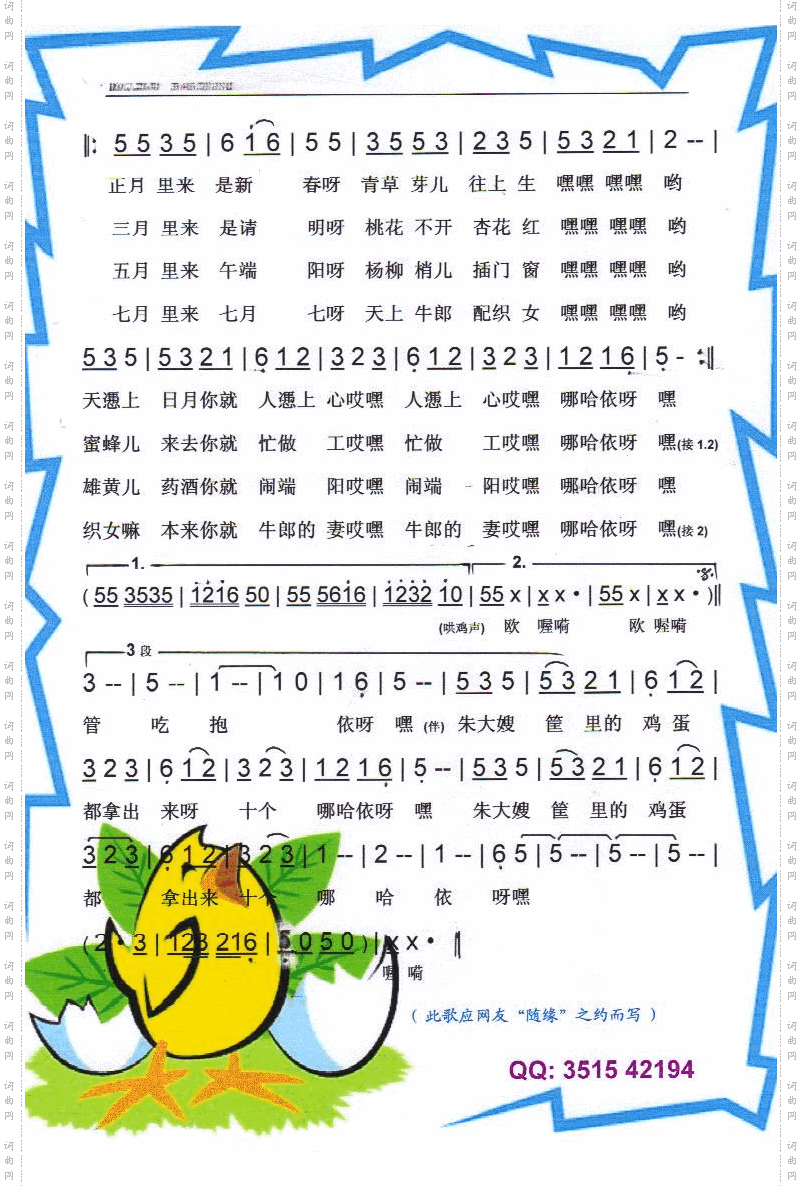 ‖: 5 5 3 5 | 6 1 6 | 5 5 | 3 5 5 3 | 2 3 5 | 5 3 2 1 | 2 -- |
正月 里来 是新 春呀 青草 芽儿 往上 生 嘿嘿 嘿嘿 哟
三月 里来 是请 明呀 桃花 不开 杏花 红 嘿嘿 嘿嘿 哟
五月 里来 午端 阳呀 杨柳 梢儿 插门 窗 嘿嘿 嘿嘿 哟
七月 里来 七月 七呀 天上 牛郎 配织 女 嘿嘿 嘿嘿 哟
5 3 5 | 5 3 2 1 | 6 1 2 | 3 2 3 | 6 1 2 | 3 2 3 | 1 2 1 6 | 5 - :‖
天慿上 日月你就 人慿上 心哎嘿 人慿上 心哎嘿 哪哈依呀 嘿
蜜蜂儿 来去你就 忙做 工哎嘿 忙做 工哎嘿 哪哈依呀 嘿(接 1.2)
雄黄儿 药酒你就 闹端 阳哎嘿 闹端 阳哎嘿 哪哈依呀 嘿
织女嘛 本来你就 牛郎的 妻哎嘿 牛郎的 妻哎嘿 哪哈依呀 嘿(接 2)
1. 2.
( 55 3535 | 1216 50 | 55 5616 | 1232 10 | 55 x | x x • | 55 x | x x • )‖
(哄鸡声) 欧 喔嗬 欧 喔嗬
3 段
3 -- | 5 -- | 1 -- | 1 0 | 1 6 | 5 -- | 5 3 5 | 5 3 2 1 | 6 1 2 |
管 吃 抱 依呀 嘿 (伴) 朱大嫂 筐 里的 鸡 蛋
3 2 3 | 6 1 2 | 3 2 3 | 1 2 1 6 | 5 -- | 5 3 5 | 5 3 2 1 | 6 1 2 |
都拿出 来呀 十个 哪哈依呀 嘿 朱大嫂 筐 里的 鸡蛋
3 2 3 | 6 1 2 | 3 2 3 | 1 -- | 2 -- | 1 -- | 6 5 | 5 -- | 5 -- | 5 -- |
都 拿出来 十个 哪 哈 依 呀嘿
( 2 • 3 | 123 216 | 5 0 5 0 ) | x x • ‖
喔 嗬
( 此歌应网友“随缘”之约而写 )
QQ: 3515 42194